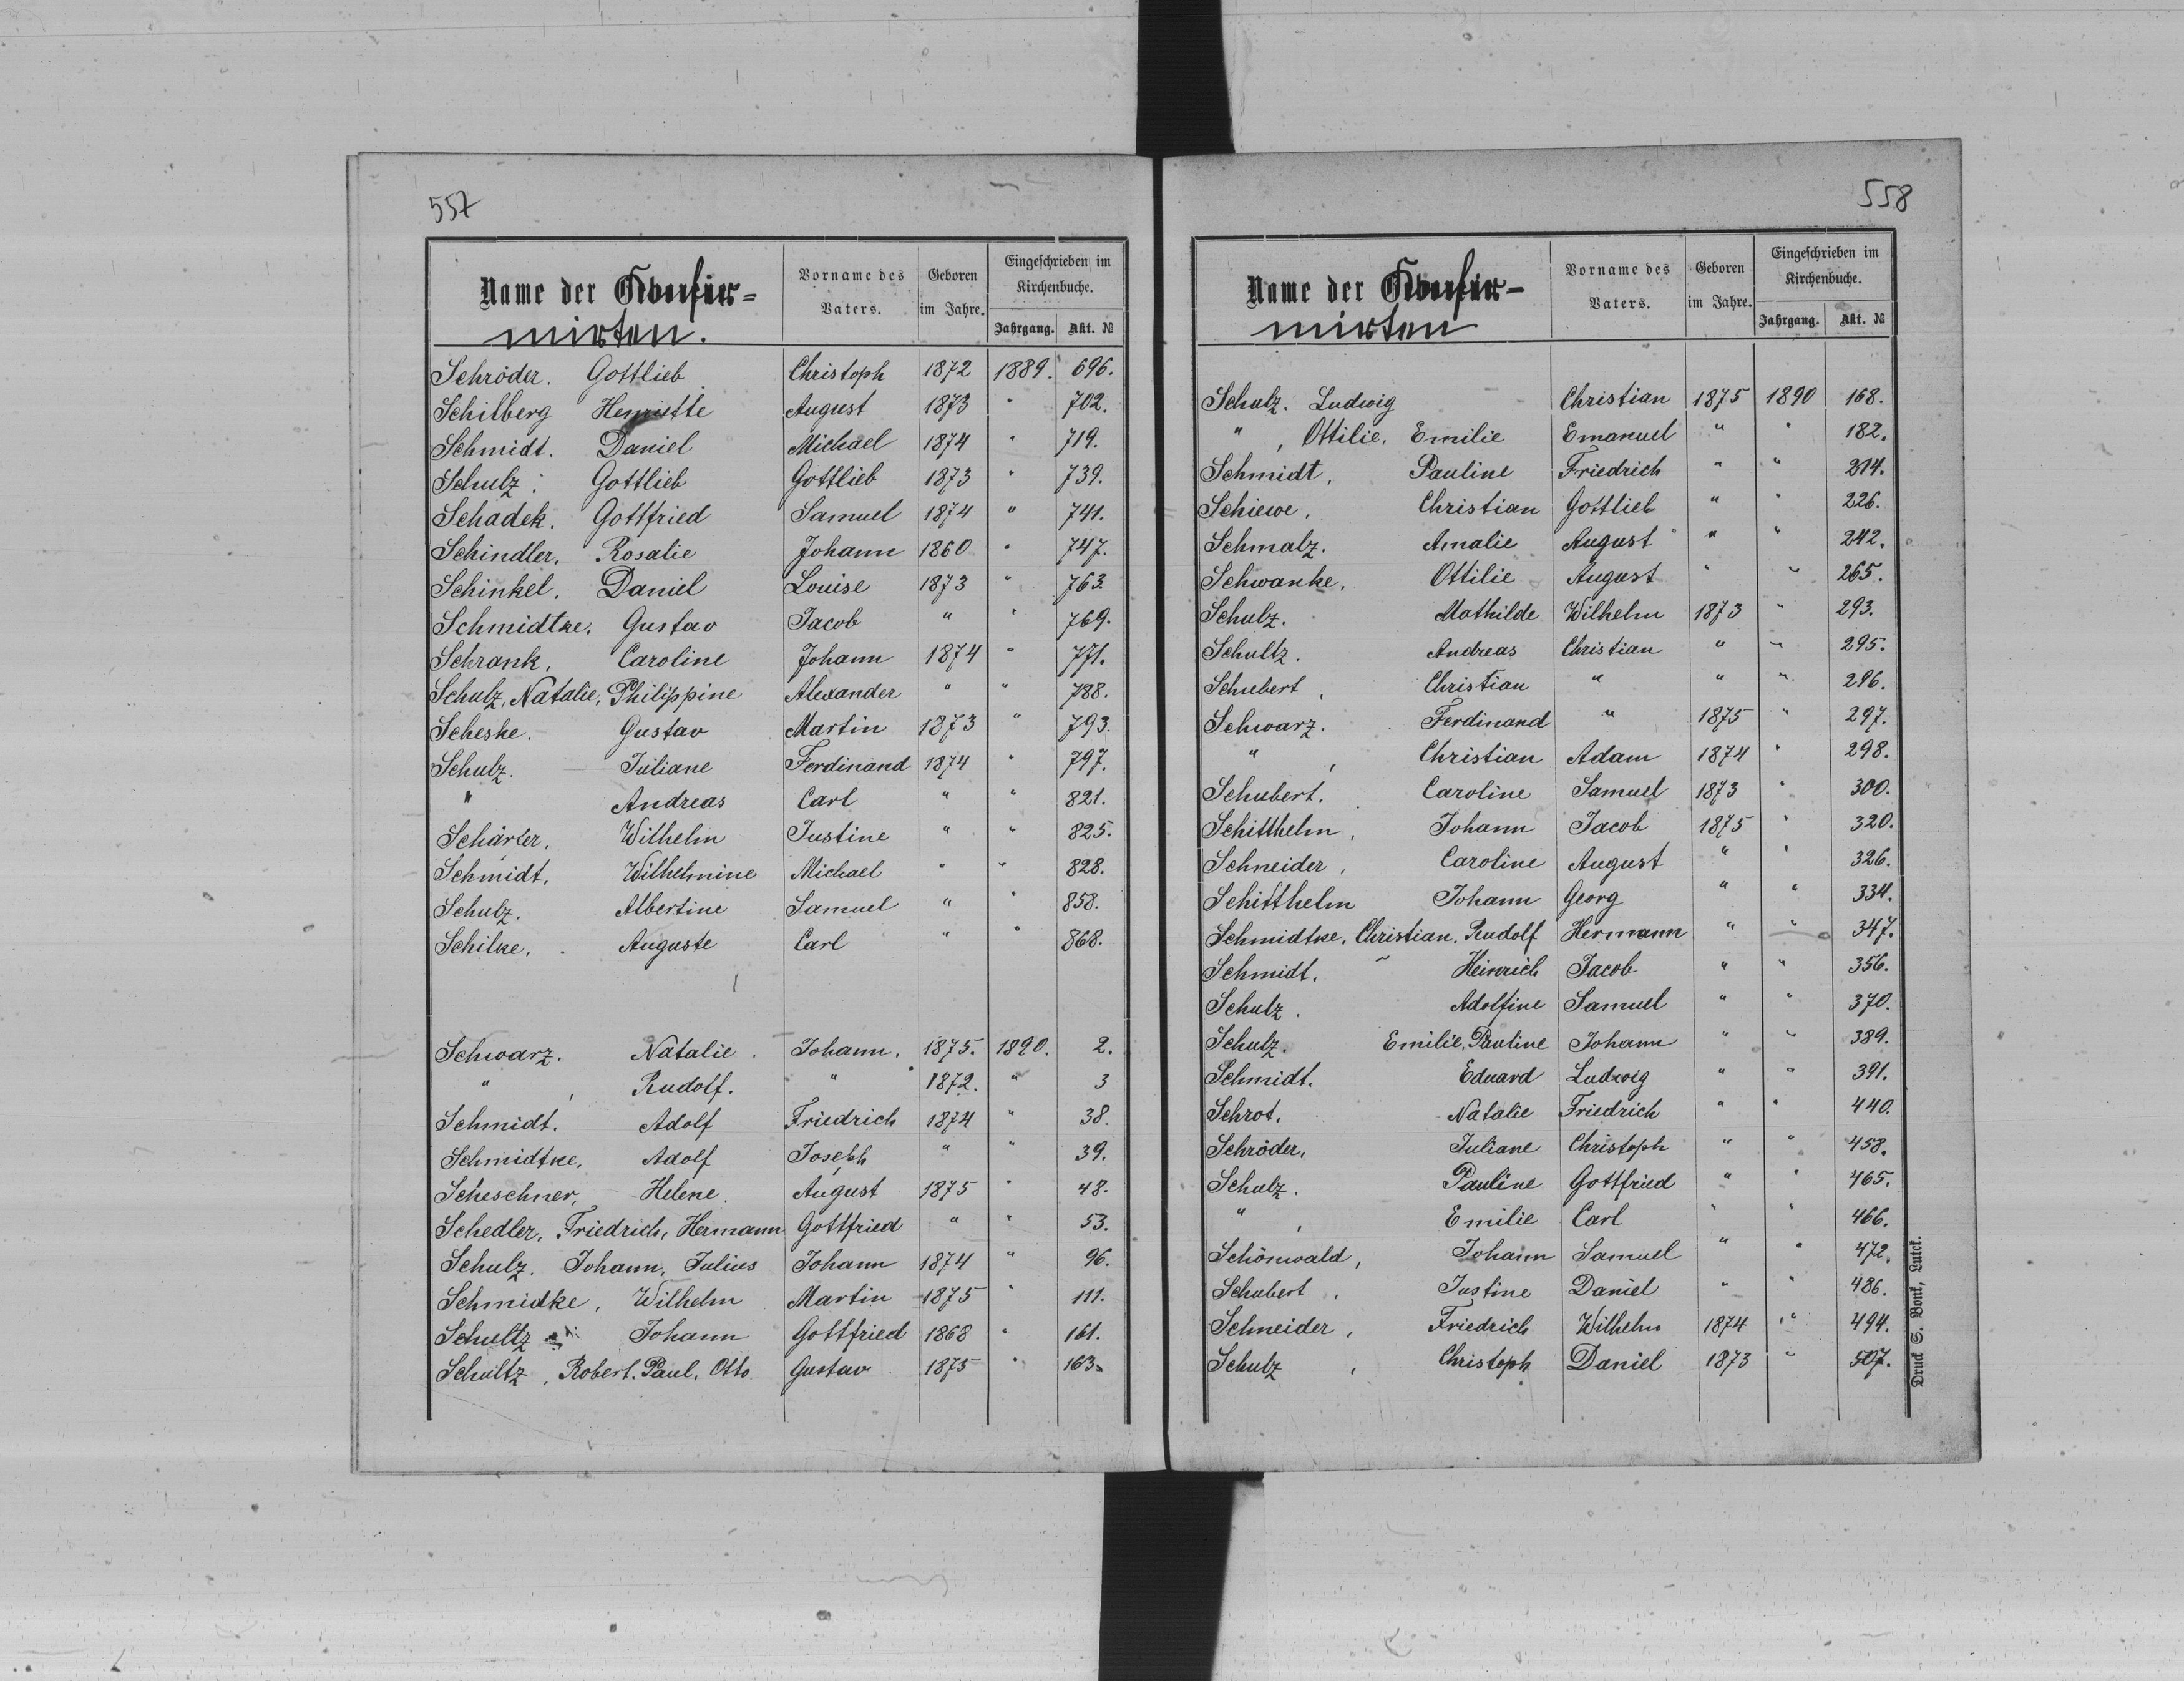 557
Name der Konfir=
mirten.
Vorname des Vaters.
Geboren im Jahre.
Eingeschrieben im Kirchenbuche.
Jahrgang. Akt. №
Schröder. Gottlieb Christoph 1872 1889. 696.
Schilberg Henriette August 1873 " 702.
Schmidt. Daniel Michael 1874 " 719.
Schulz. Gottlieb Gottlieb 1873 " 739.
Schadek. Gottfried Samuel 1874 " 741.
Schindler, Rosalie Johann 1860 " 747.
Schinkel. Daniel Louise 1873 " 763.
Schmidtke. Gustav Jacob " " 769.
Schrank, Caroline Johann 1874 " 771.
Schulz, Natalie, Philippine Alexander " " 788.
Scheske. Gustav Martin 1873 " 793.
Schulz. Juliane Ferdinand 1874 " 797.
" Andreas Carl " " 821.
Schärfer, Wilhelm Justine " " 825.
Schmidt, Wilhelmine Michael " " 828.
Schulz. Albertine Samuel " " 858.
Schilke. Auguste Carl " " 868.
Schwarz. Natalie. Johann. 1875. 1890. 2.
" , Rudolf. " 1872. " 3
Schmidt. Adolf Friedrich 1874 " 38.
Schmidtke, Adolf Joseph " " 39.
Scheschner, Helene. August 1875 " 48.
Schedler, Friedrich, Hermann Gottfried " " 53.
Schulz. Johann, Julius Johann 1874 " 96.
Schmidke, Wilhelm Martin 1875 " 111.
Schultz Johann Gottfried 1868 " 161.
Schultz, Robert. Paul. Otto Gustav 1875 " 163.
558
Name der Konfir-
mirten
Vorname des Vaters.
Geboren im Jahre.
Eingeschrieben im Kirchenbuche.
Jahrgang. Akt. №
Schulz. Ludwig Christian 1875 1890 168.
" , Ottilie, Emilie Emanuel " " 182.
Schmidt, Pauline Friedrich " " 214.
Schiewe. Christian Gottlieb " " 226.
Schmalz. Amalie August " " 242.
Schwanke, Ottilie August " " 265.
Schulz. Mathilde Wilhelm 1873 " 293.
Schultz. Andreas Christian " " 295.
Schubert, Christian " " " 296.
Schwarz. Ferdinand " 1875 " 297.
" , Christian Adam 1874 " 298.
Schubert. Caroline Samuel 1873 " 300.
Schitthelm, Johann Jacob 1875 " 320.
Schneider, Caroline August " " 326.
Schitthelm Johann Georg " " 334.
Schmidtke. Christian. Rudolf Hermann " " 347.
Schmidt. Heinrich Jacob " " 356.
Schulz. Adolfine Samuel " " 370.
Schulz. Emilie, Pauline Johann " " 389.
Schmidt. Eduard Ludwig " " 391.
Schrot. Natalie Friedrich " " 440.
Schröder, Juliane Christoph " " 458.
Schulz. Pauline Gottfried " " 465.
" , Emilie Carl " " 466.
Schönwald, Johann Samuel " " 472.
Schubert, Justine Daniel " " 486.
Schneider, Friedrich Wilhelm 1874 " 494.
Schulz, Christoph Daniel 1873 " 507.
Druck S. Bonk, Luick.